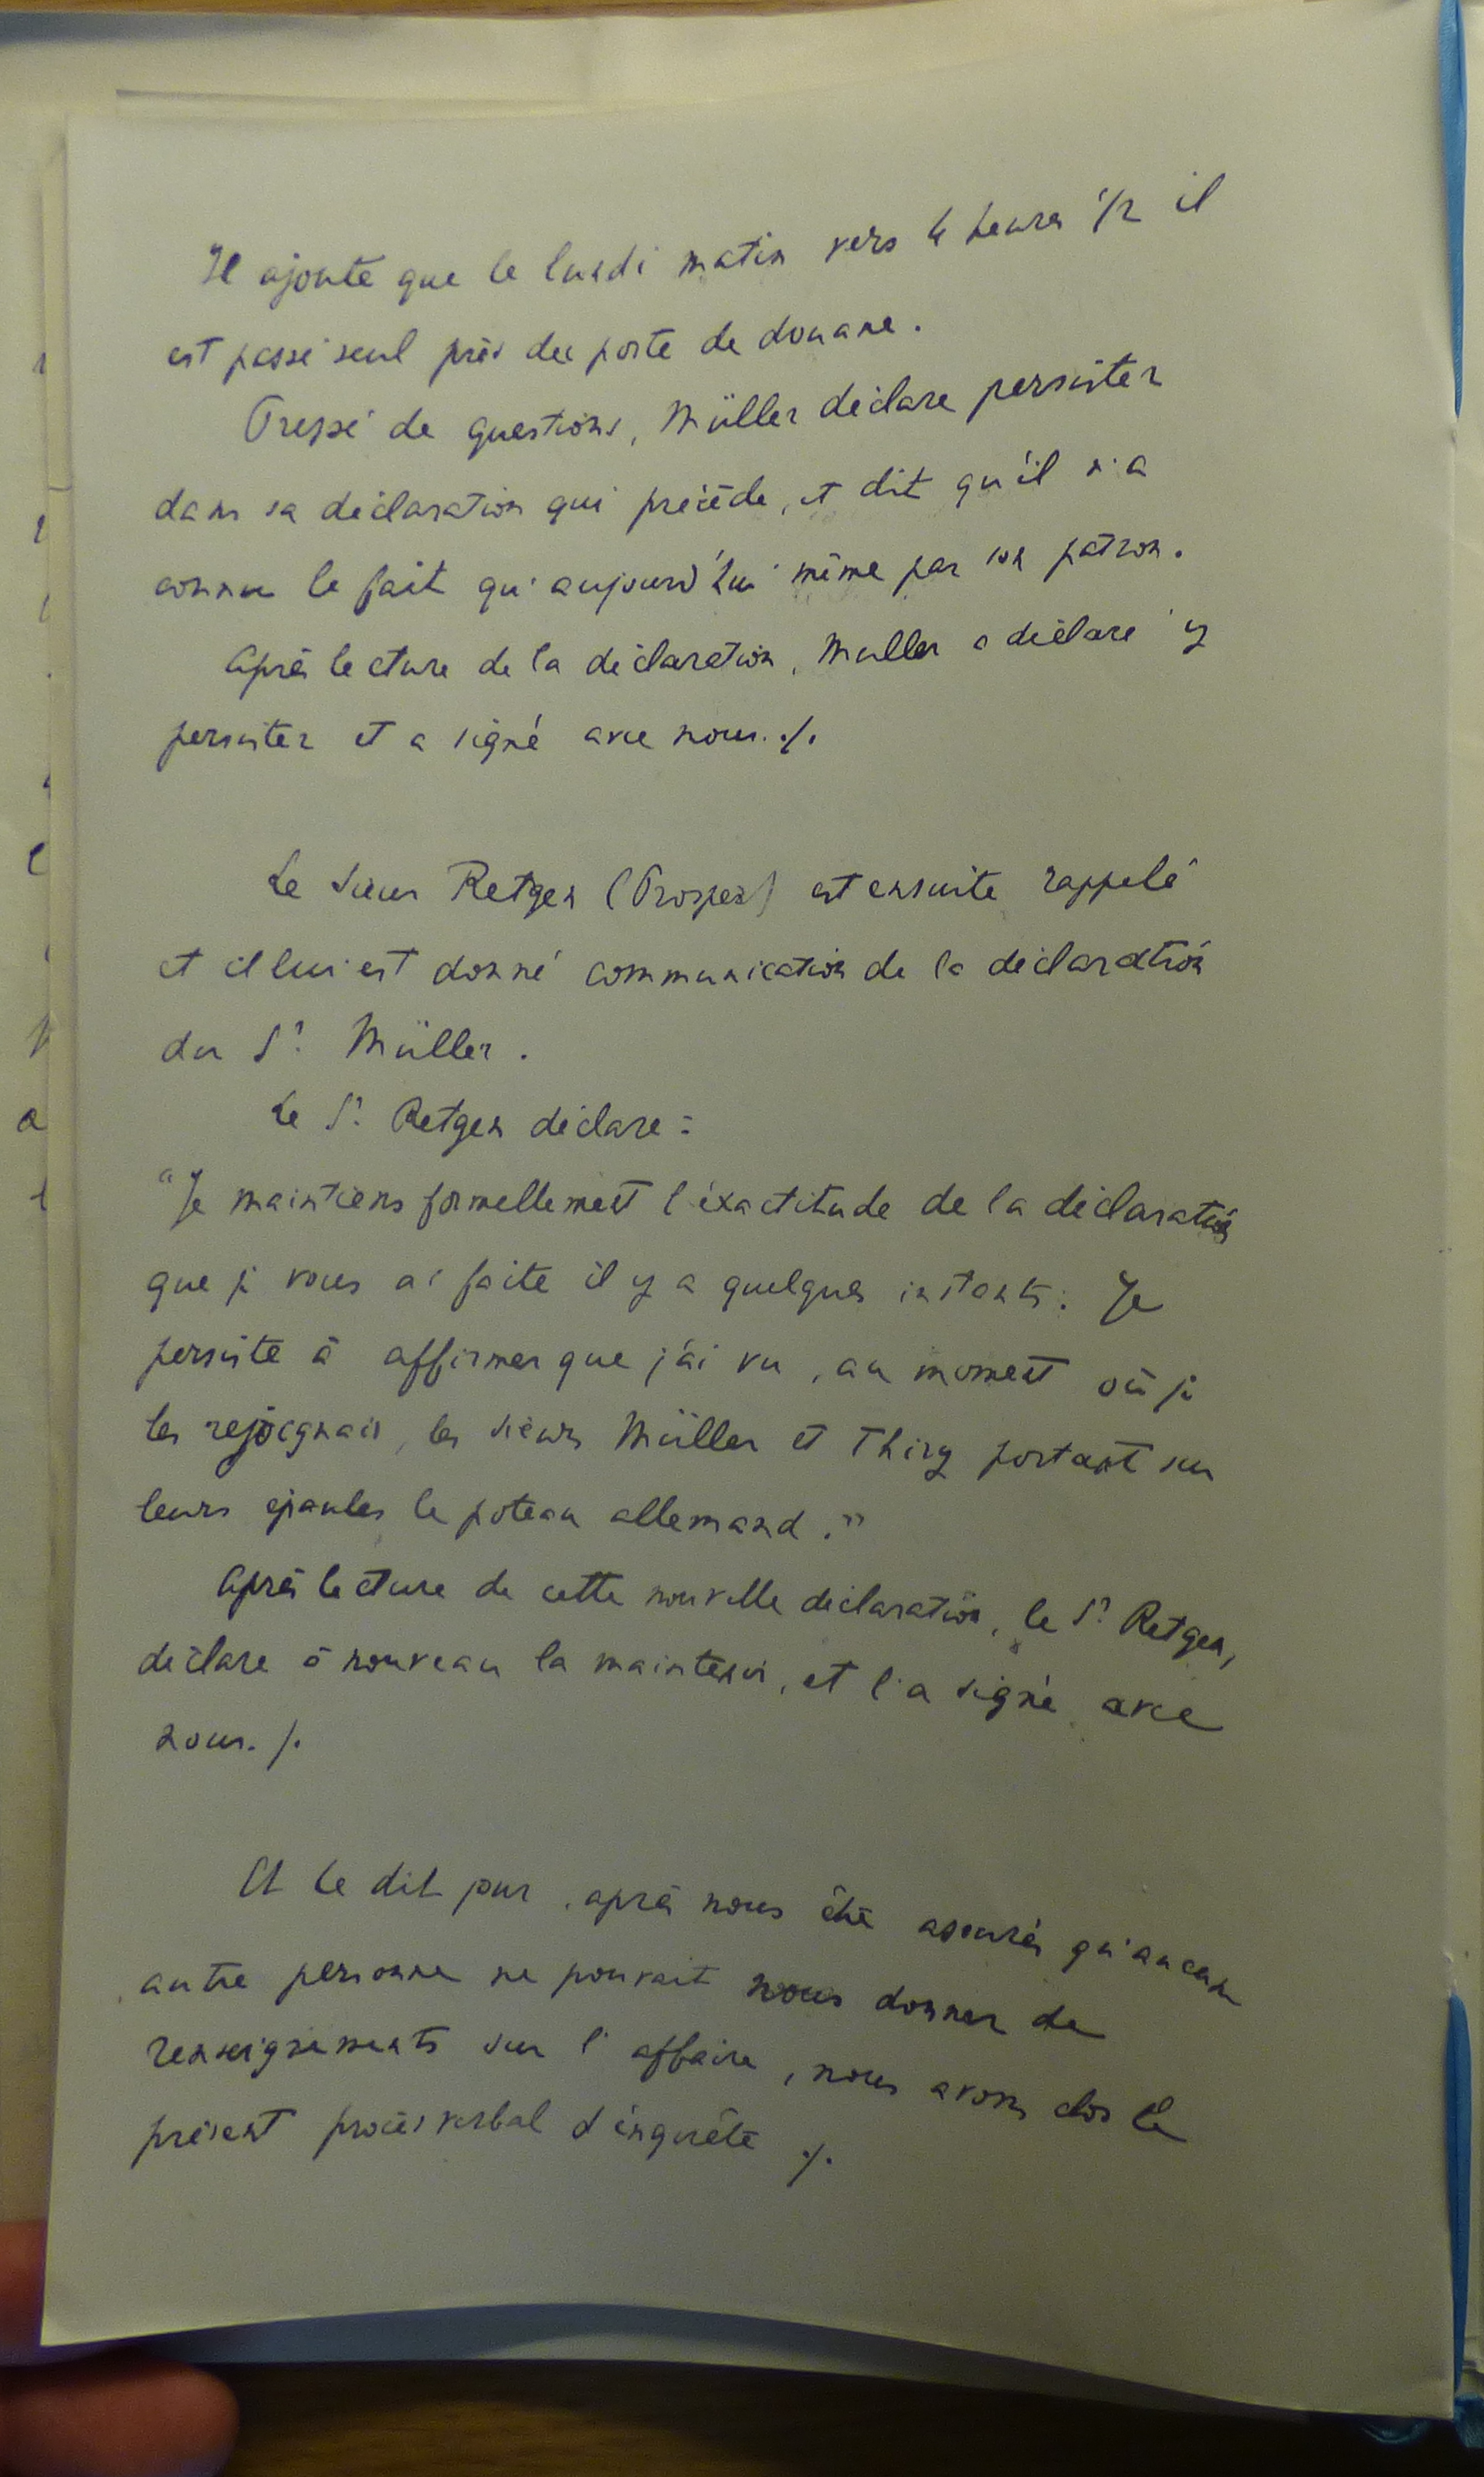 Il ajoute que le lundi matin vers 4 heures 1/2 il
est passé seul près du poste de douane.
Pressé de questions, Müller déclare persister
dans sa déclaration qui précède, et dit qu'il n'a
connu le fait qu'aujourd'hui même par son patron.
Après lecture de la déclaration, Muller a déclaré y
persister et a signé avec nous ./.
Le sieur Retgen (Prosper) est ensuite rappelé
et il lui est donné communication de la déclaration
du Sr. Müller.
Le Sr. Retgen déclare :
"Je maintiens formellement l'éxactitude de la déclaration
que je vous ai faite il y a quelques instants. Je
persiste à affirmer que j'ai vu, au moment où je
les rejoignais, les sieurs Müller et Thiry portant sur
leurs épaules le poteau allemand."
Après lecture de cette nouvelle déclaration, le Sr. Retgen,
déclare à nouveau la maintenir, et l'a signé avec
nous. /.
Et le dit jour, après nous être assurés qu'aucune
autre personne ne pouvait nous donner de
renseignements sur l'affaire, nous avons clos le
présent procès verbal d'enquête ./.